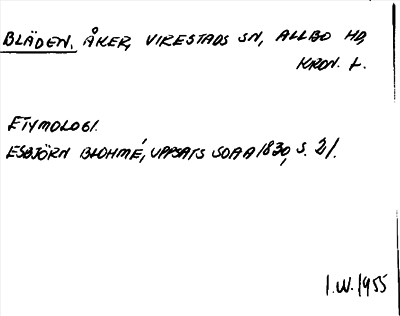 BLÄDEN, ÅKER, VIRESTADS SN, ALLBO HD,
KRON. L.
ETYMOLOGI.
ESBJÖRN BLOHMÉ, UPPSATS SOAA 1830, S. 21.
I.W. 1955